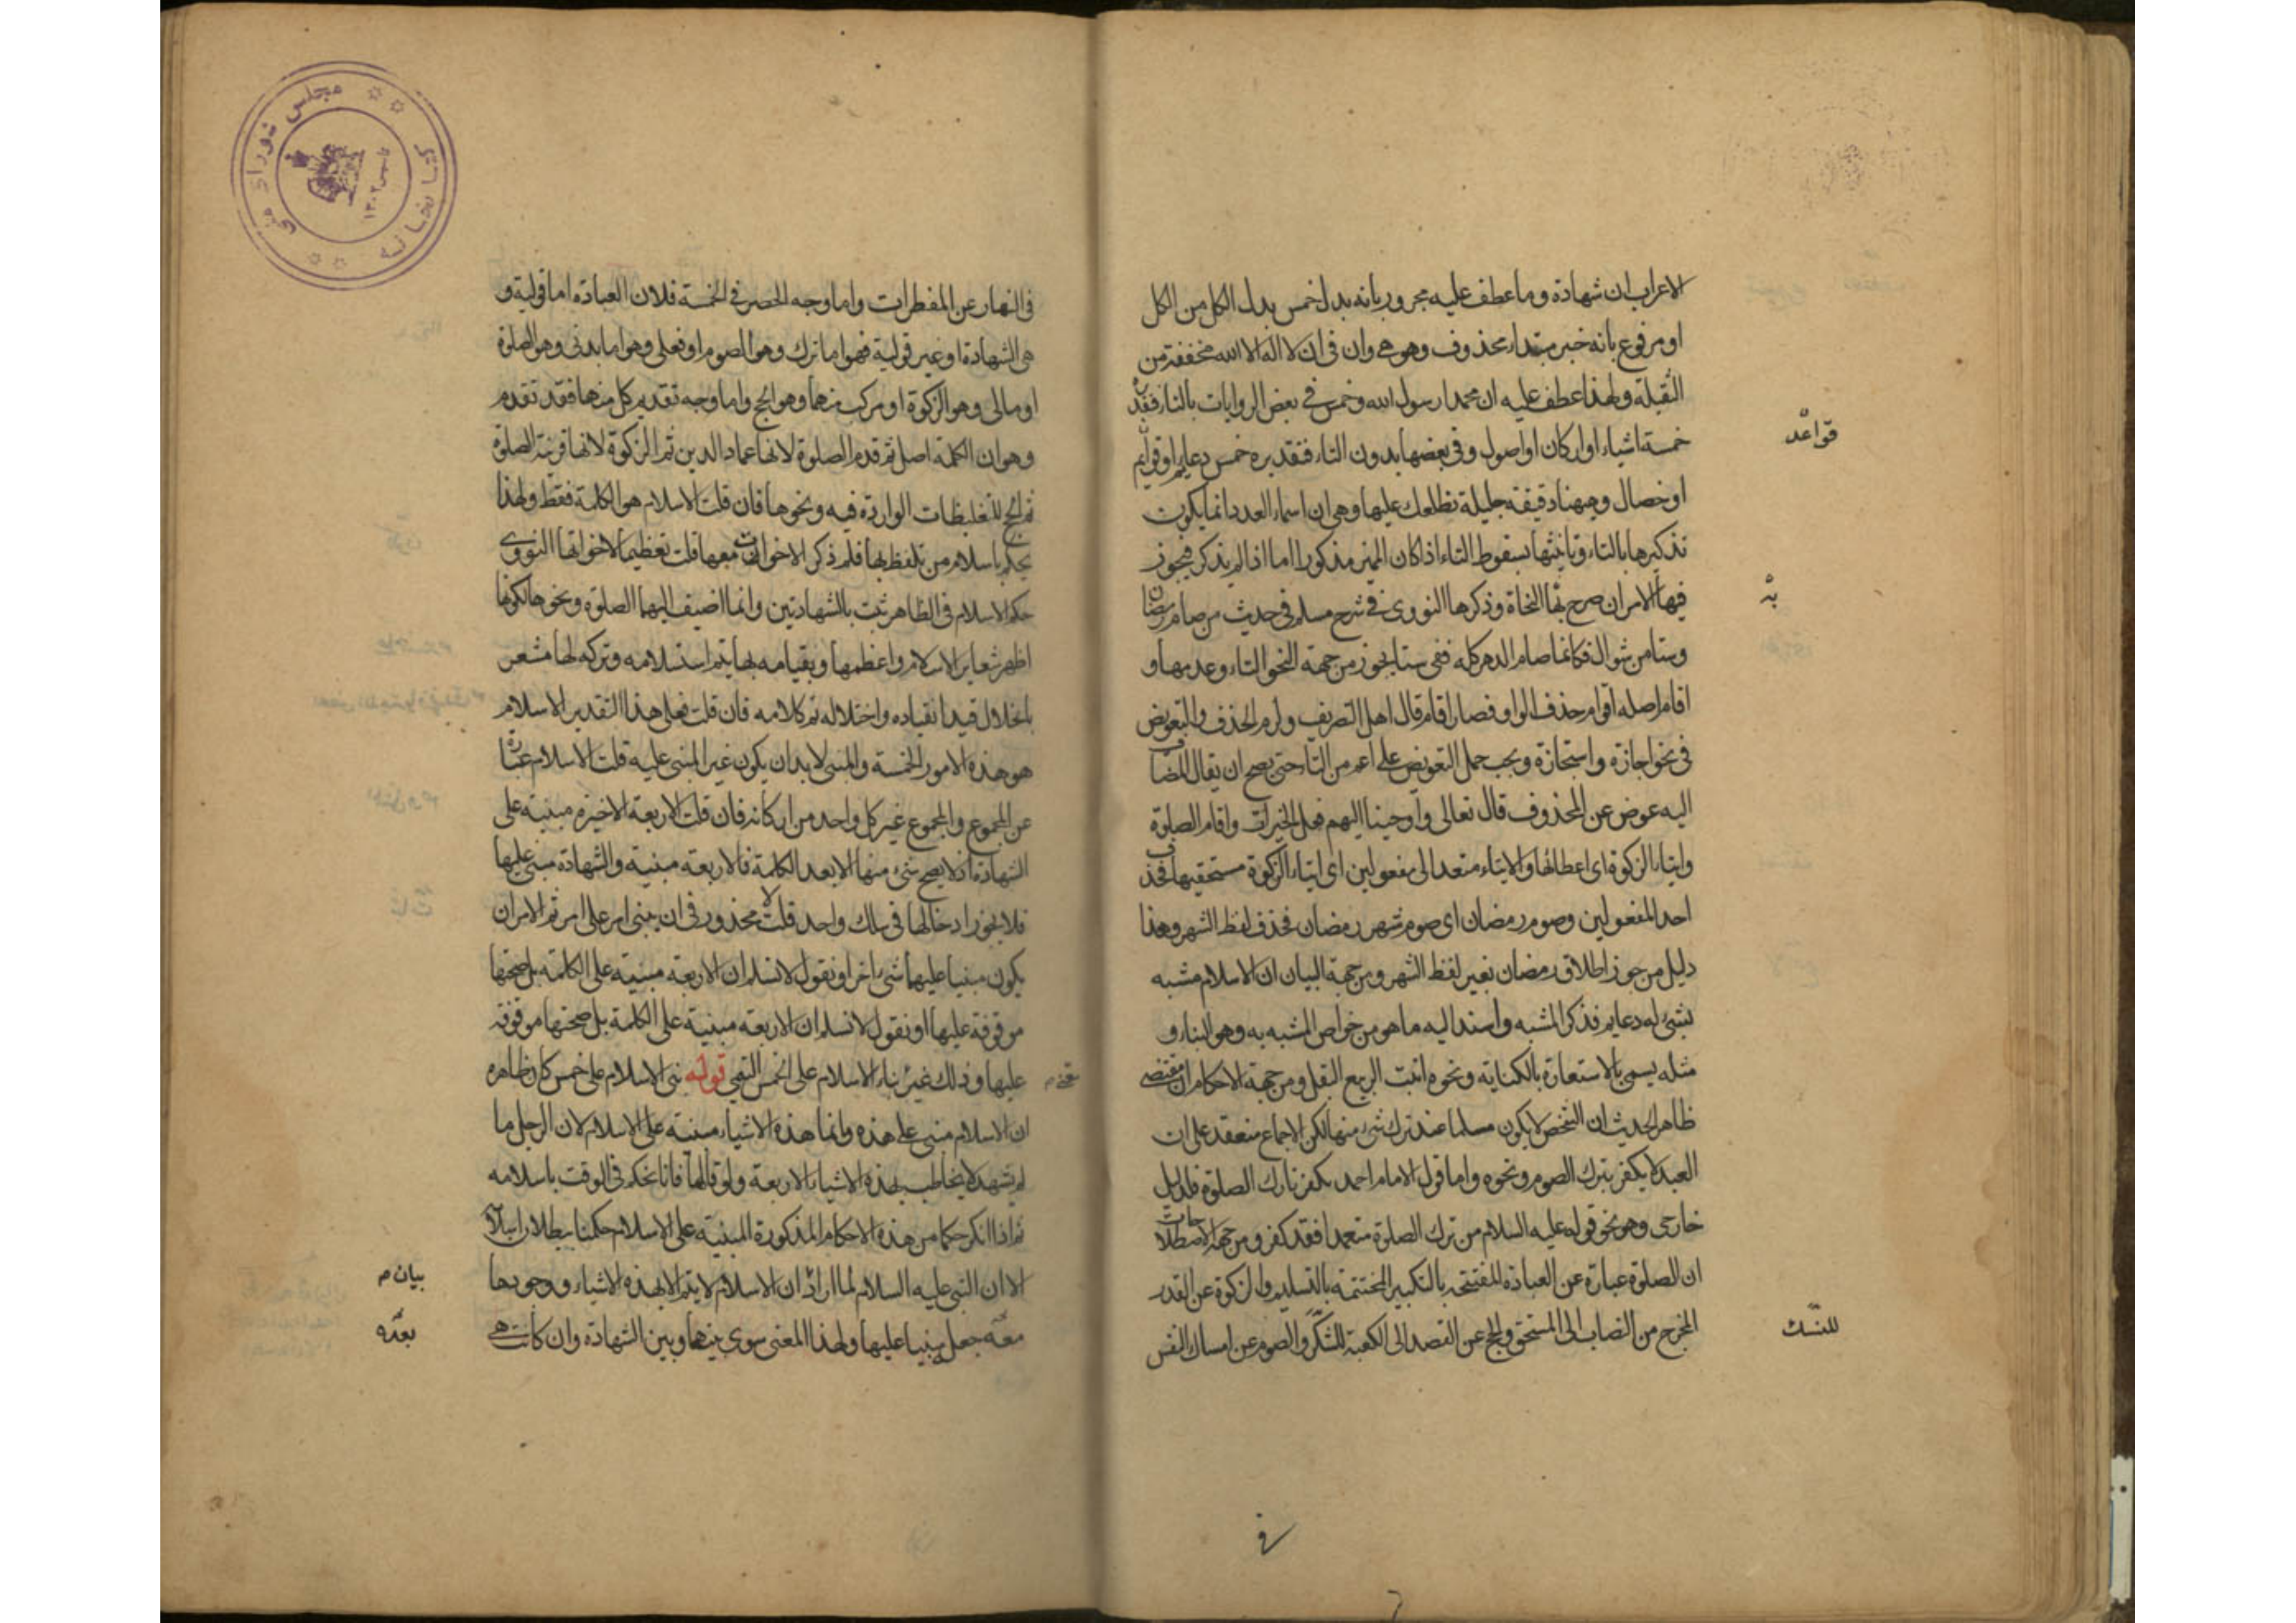 الاعراب ان شهادة وما عطف عليه مجرور بانه بدل خمس بدل الكل من الكل
او مرفوع بانه خبر مبتداء محذوف وهو هى وان فى ان لا اله الا الله مخففة من
الثقيلة ولهذا عطف عليه ان محمدا رسول الله وخمس فى بعض الروايات بالتاء فتقديره
خمسة اشياء او اركان او اصول وفى بعضها بدون التاء فتقديره خمس دعايم او قوايم
قواعد
او خصال وههنا دقيقة جليلة نطلعك عليها وهى ان اسماء العدد انما يكون
تذكيرها بالتاء وتانيثها بسقوط التاء اذا كان المميز مذكورا اما اذا لم يذكر فيجوز
فيها الامران صرح بها النحاة وذكرها النووى فى شرح مسلم فى حديث من صام رمضان
به
وستا من شوال فكانما صام الدهر كله ففى ستا يجوز من جهة النحو التاء وعدمها و
اقام اصله اقوام حذف الواو فصار اقام قال اهل التصريف ولزم الحذف والتعويض
فى نحو اجازة واستجازة ويجب حمل التعويض على اعم من التاء حتى يصح ان يقال المضاف
اليه عوض عن المحذوف قال تعالى واوحينا اليهم فعل الخيرات واقام الصلوة
وايتاء الزكوة اى اعطائها والايتاء متعد الى مفعولين اى ايتاء الزكوة مستحقيها فحذف
احد المفعولين وصوم رمضان اى صوم شهر رمضان فحذف لفظ الشهر وهذا
دليل من جوز اطلاق رمضان بغير لفظ الشهر ومن جهة البيان ان الاسلام مشبه
بشئ له دعايم فذكر المشبه واسند اليه ما هو من خواص المشبه به وهو البناء و
مثله يسمى بالاستعارة بالكناية ونحوه انبت الربيع البقل ومن جهة الاحكام ان مقتضى
ظاهر الحديث ان الشخص لا يكون مسلما عند ترك شئ منها لكن الاجماع منعقد على ان
العبد لا يكفر بترك الصوم ونحوه واما قول الامام احمد بكفر تارك الصلوة فلدليل
خارجى وهو نحو قوله عليه السلام من ترك الصلوة متعمدا فقد كفر ومن جهة الاصطلاحات
ان الصلوة عبارة عن العبادة المفتتحة بالتكبير المختتمة بالتسليم والزكوة عن القدر
المخرج من النصاب الى المستحق والحج عن القصد الى الكعبة للنسك والصوم عن امساك النفس
للنسك
فى النهار عن المفطرات واما وجه الحصر فى الخمسة فلان العبادة اما قولية و
هى الشهادة او غير قولية فهو اما ترك وهو الصوم او فعلى وهو اما بدنى وهو الصلوة
او مالى وهو الزكوة او مركب منهما وهو الحج واما وجه تقديم كل منها فقد تقدم
وهو ان الكلمة اصل ثم قدم الصلوة لانها عماد الدين ثم الزكوة لانها قرينة الصلوة
ثم الحج للتغليظات الواردة فيه ونحوها فان قلت الاسلام هو الكلمة فقط ولهذا
يحكم باسلام من تلفظ بها فلم ذكر الاخوات معها قلت تعظيما لاخواتها النووى
حكم الاسلام فى الظاهر ثبت بالشهادتين وانما اضيف اليهما الصلوة ونحوها لكونها
اظهر شعاير الاسلام واعظمها وبقيامه بها يتم استسلامه وتركه لها مشعر
بانحلال قيد انقياده واختلاله تم كلامه فان قلت فعلى هذا التقدير الاسلام
هو هذه الامور الخمسة والمبنى لا بد ان يكون غير المبنى عليه قلت الاسلام عبارة
عن المجموع والمجموع غير كل واحد من اركانه فان قلت الاربعة الاخيرة مبنية على
الشهادة اذ لا يصح شئ منها الا بعد الكلمة فالاربعة مبنية والشهادة مبنى عليها
فلا يجوز ادخالها فى سلك واحد قلت لا محذور فى ان يبنى امر على امر ثم الامران
يكون مبنيا عليهما شئ اخر او نقول لا نسلم ان الاربعة مبنية على الكلمة بل صحتها
موقوفة عليها او نقول لا نسلم ان الاربعة مبنية على الكلمة بل صحتها موقوفة
عليها وذلك غير بناء الاسلام على الخمس التيمى قوله بنى الاسلام على خمس كان ظاهره
ان الاسلام مبنى على هذه وانما هذه الاشياء مبنية على الاسلام لان الرجل ما
لم يشهد لا يخاطب بهذه الاشياء الاربعة ولو قالها فانا نحكم فى الوقت باسلامه
ثم اذا انكر حكما من هذه الاحكام المذكورة المبنية على الاسلام حكمنا ببطلان اسلامه
الا ان النبى عليه السلام لما اراد ان الاسلام لا يتم الا بهذه الاشياء ووجودها
بيان م
معه جعله مبنيا عليها ولهذا المعنى سوى بينها وبين الشهادة وان كانت هى
بعده
كتابخانه مجلس شوراى ملى